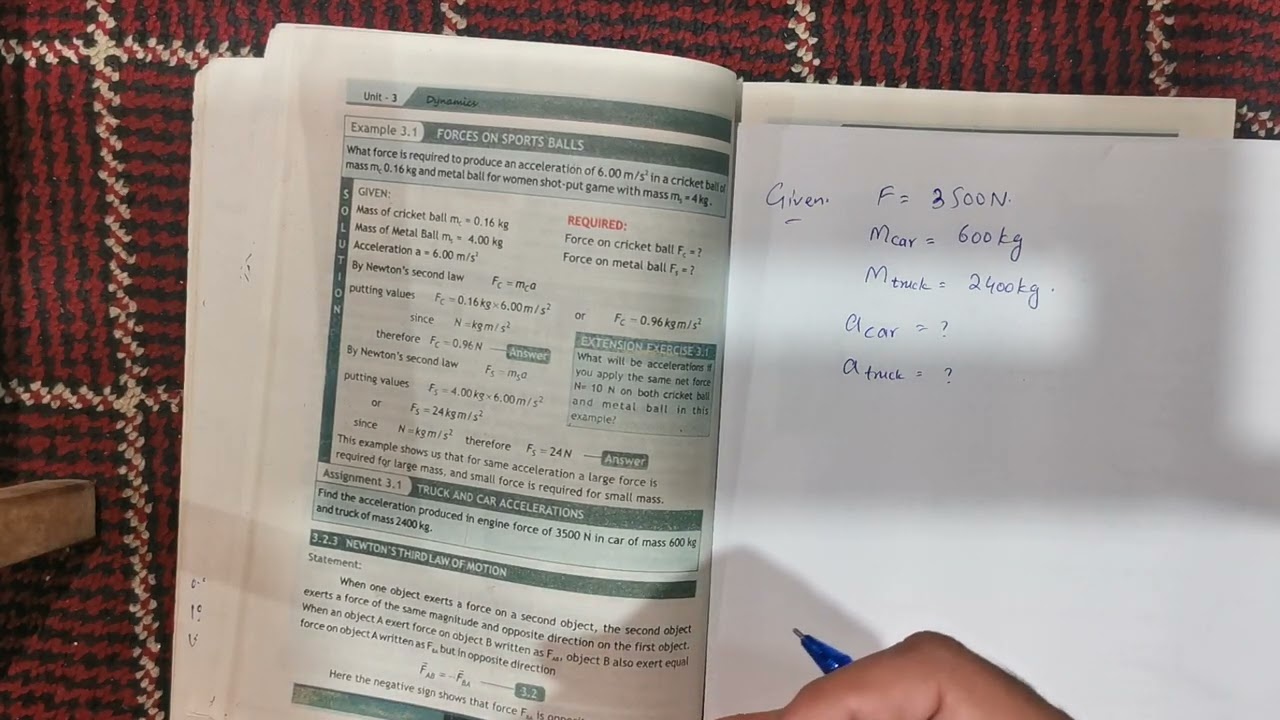 Unit - 3 Dynamics
Example 3.1 FORCES ON SPORTS BALLS
What force is required to produce an acceleration of 6.00 m/s² in a cricket ball of
mass m꜀ 0.16 kg and metal ball for women shot-put game with mass mₛ = 4 kg.
SOLUTION
GIVEN:
Mass of cricket ball m꜀ = 0.16 kg
Mass of Metal Ball mₛ = 4.00 kg
Acceleration a = 6.00 m/s²
REQUIRED:
Force on cricket ball F꜀ = ?
Force on metal ball Fₛ = ?
By Newton's second law F_C = m_C a
putting values F_C = 0.16 kg × 6.00 m/s² or F_C = 0.96 kg m/s²
since N = kg m/s²
therefore F_C = 0.96 N Answer
By Newton's second law F_S = m_S a
putting values F_S = 4.00 kg × 6.00 m/s²
or F_S = 24 kg m/s²
since N = kg m/s² therefore F_S = 24 N Answer
EXTENSION EXERCISE 3.1
What will be accelerations if
you apply the same net force
N= 10 N on both cricket ball
and metal ball in this
example?
This example shows us that for same acceleration a large force is
required for large mass, and small force is required for small mass.
Assignment 3.1 TRUCK AND CAR ACCELERATIONS
Find the acceleration produced in engine force of 3500 N in car of mass 600 kg
and truck of mass 2400 kg.
3.2.3 NEWTON'S THIRD LAW OF MOTION
Statement:
When one object exerts a force on a second object, the second object
exerts a force of the same magnitude and opposite direction on the first object.
When an object A exert force on object B written as F_AB, object B also exert equal
force on object A written as F_BA but in opposite direction
F⃗_AB = -F⃗_BA 3.2
Here the negative sign shows that force F_BA is
Given. F = 3500N.
M car = 600 kg
M truck = 2400 kg.
a car = ?
a truck = ?